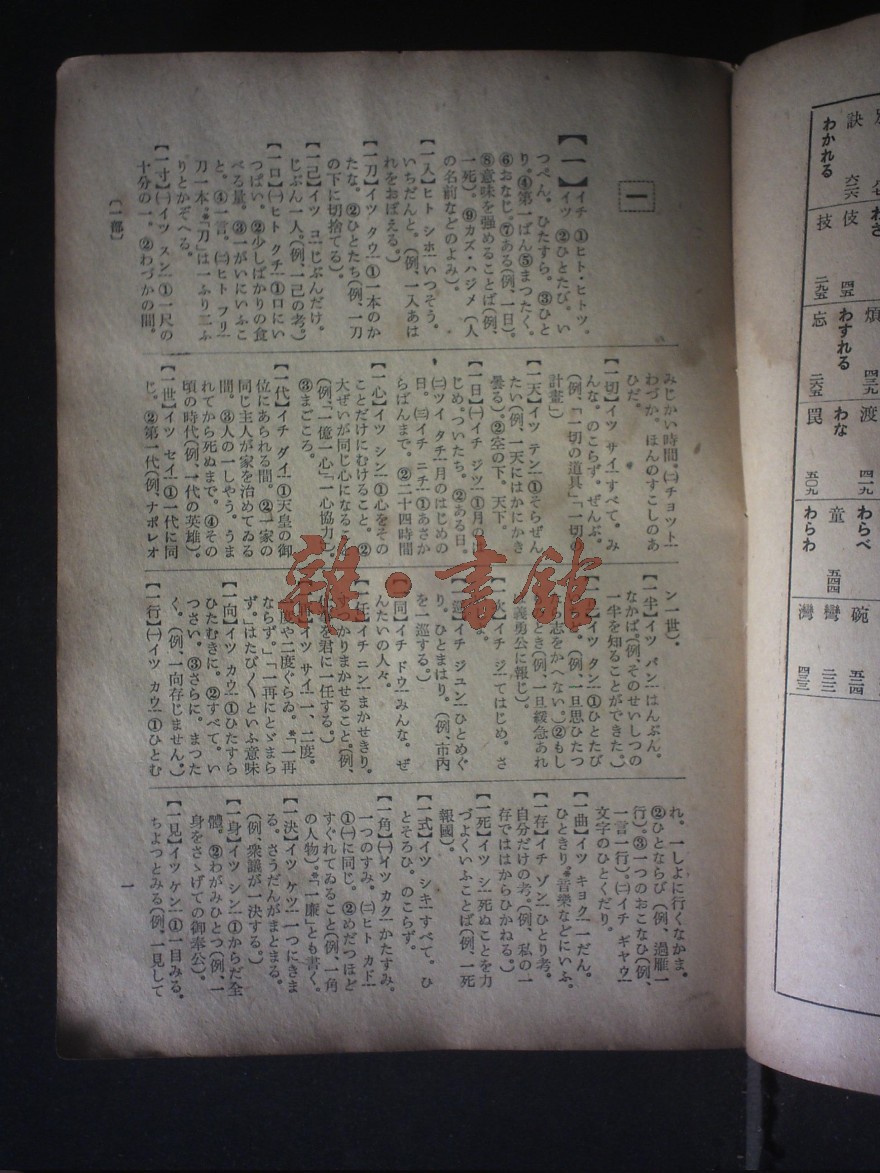 一
【一】イチ ①ヒト・ヒトツ。
イツ ②ひとたび。い
つぺん。ひたすら。③ひと
り。④第一ばん⑤まつたく。
⑥おなじ。⑦ある(例、一日)。
⑧意味を強めることば(例、
一死)。⑨カズ・ハジメ(人
の名前などのよみ)。
【一入】ヒト シホ―いつそう。
いちだんと。(例、一入あは
れをおぼえる。)
【一刀】イツ タウ―①一本のか
たな。②ひとたち(例、一刀
の下に切捨てる)。
【一己】イツ コ―じぶんだけ。
じぶん一人。(例、一己の考。)
【一口】㈠ヒト クチ―①口にい
つぱい。②少しばかりの食
べる量。③一がいにいふこ
と。④一言。㈡ヒト フリ―
刀一本。*「刀」は一ふり二ふ
りとかぞへる。
【一寸】㈠イツ スン―①一尺の
十分の一。②わづかの間。
〔一部〕
みじかい時間。㈡チョツト―
わづか。ほんのすこしのあ
ひだ。
【一切】イツ サイ―すべて。み
んな。のこらず。ぜんぶ。
(例、「一切の道具」「一切の
計畫」)
【一天】イツ テン―①そらぜん
たい(例、一天にはかにかき
曇る)。②空の下。天下。
【一日】㈠イチ ジツ―①月のは
じめ。ついたち。②ある日。
㈡ツイ タチ―月のはじめの
日。㈢イチ ニチ―①あさか
らばんまで。②二十四時間
【一心】イツ シン―①心をその
ことだけにむけること。②
大ぜいが同じ心になること
(例、「一億一心」「一心協力」)。
③まごころ。
【一代】イチ ダイ―①天皇の御
位にあられる間。②一家の
同じ主人が家を治めてゐる
間。③人の一しやう。うま
れてから死ぬまで。④その
頃の時代(例、一代の英雄)。
【一世】イツ セイ―①一代に同
じ。②第一代(例、ナポレオ
ン一世)。
【一半】イツ パン―はんぶん。
なかば。(例、そのせいしつの
一半を知ることができた。)
イツ タン―①ひとたび
(例、一旦思ひたつ
志をかへない。)②もし
とき(例、一旦緩急あれ
義勇公に報じ)。
イチ ジ―てはじめ。さ
イチ ジュン―ひとめぐ
り。ひとまはり。(例、市內
を一巡する。)
同】イチ ドウ―みんな。ぜ
んたいの人々。
任】イチ ニン―まかせきり。
すつかりまかせること。(例、
を君に一任する。)
イツ サイ―一、二度。
一度や二度ぐらゐ。*「一再
ならず」「一再にとゞまら
ず」はたびく〳〵といふ意味
【一向】イツ カウ―①ひたすら
ひたむきに。②すべて。い
つさい。③さらに。まつた
く。(例、一向存じません。)
【一行】㈠イツ カウ―①ひとむ
れ。一しよに行くなかま。
②ひとならび(例、過雁一
行)。③一つのおこなひ(例、
一言一行)。㈡イチ ギヤウ―
文字のひとくだり。
【一曲】イツ キョク―一だん。
ひときり。*音樂などにいふ。
【一存】イチ ゾン―ひとり考。
自分だけの考。(例、私の一
存でははからひかねる。)
【一死】イツ シ―死ぬことを力
づよくいふことば(例、一死
報國)。
【一式】イツ シキ―すべて。ひ
とそろひ。のこらず。
【一角】㈠イツ カク―かたすみ。
一つのすみ。㈡ヒト カド―
①㈠に同じ。②めだつほど
すぐれてゐること(例、一角
の人物)。*「一廉」とも書く。
【一決】イツ ケツ―一つにきま
る。さうだんがまとまる。
(例、衆議が一決する。)
【一身】イツ シン―①からだ全
體。②わがみひとつ(例、一
身をさゝげての御奉公)。
【一見】イツ ケン―①一目みる。
ちよつとみる(例、一見して
一
訣 六六
わかれる
わざ
伎 四五
技 二九五
煩 四三九
わすれる
忘 二六五
渡 四一九
わな
罠 五〇九
わらべ
童 五四四
わらわ
碗 五二四
彎 二二二
灣 四三三
雜·書館